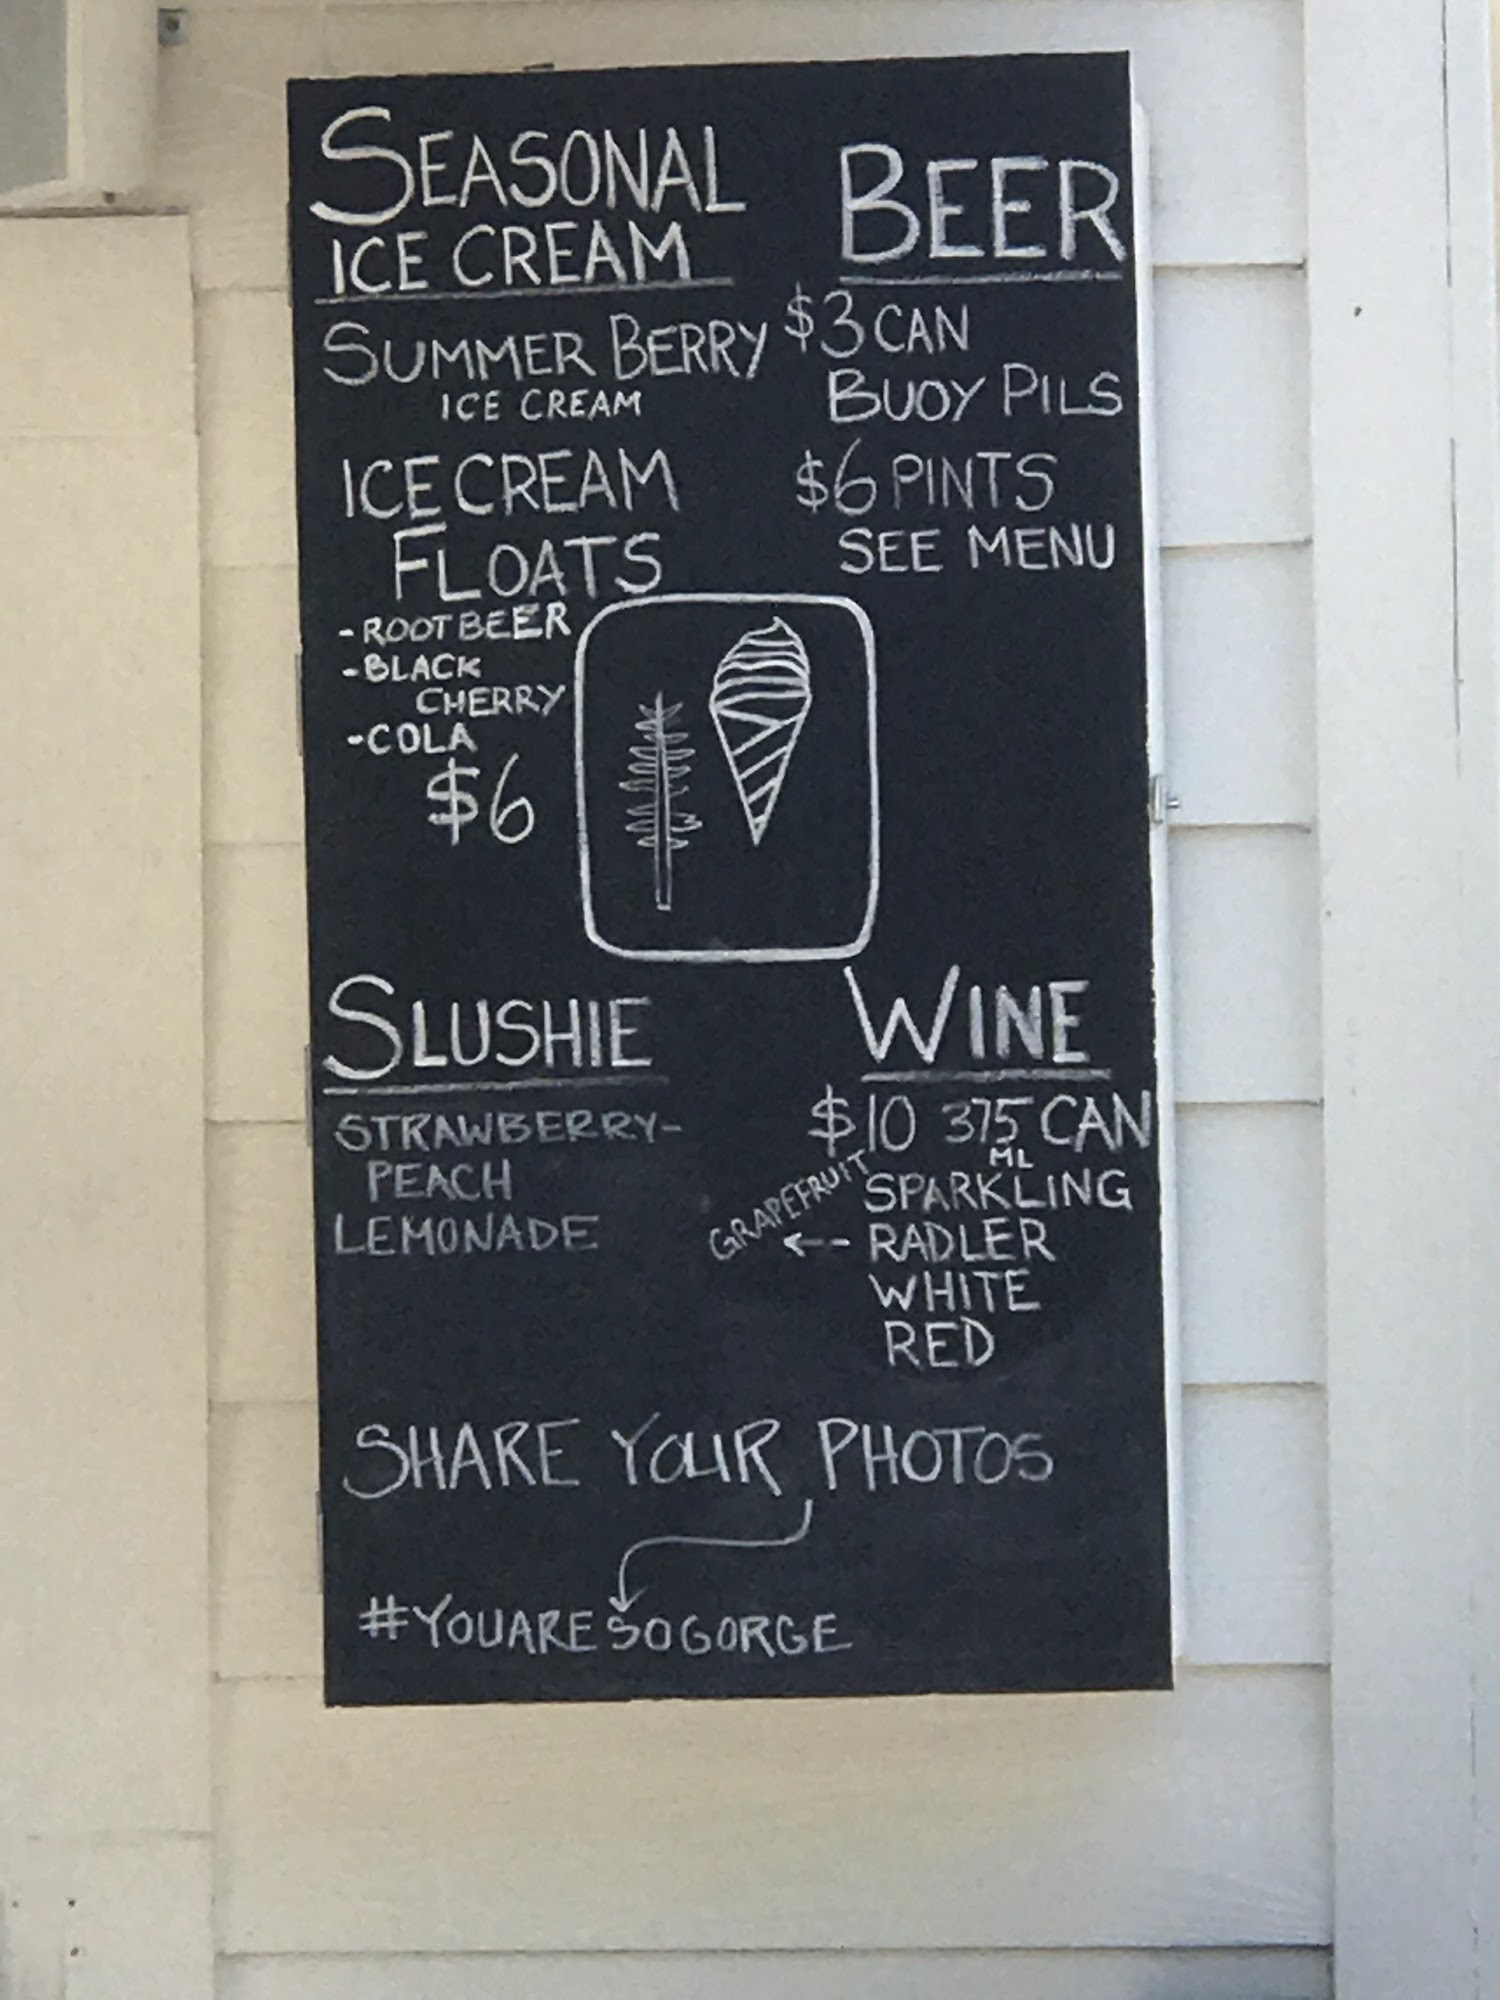 SEASONAL
ICE CREAM
SUMMER BERRY
ICE CREAM
ICE CREAM
FLOATS
-ROOT BEER
-BLACK
CHERRY
-COLA
$6
BEER
$3 CAN
BUOY PILS
$6 PINTS
SEE MENU
SLUSHIE
STRAWBERRY-
PEACH
LEMONADE
WINE
$10 375 CAN
ML
SPARKLING
GRAPEFRUIT
<-- RADLER
WHITE
RED
SHARE YOUR PHOTOS
#YOUARESOGORGE